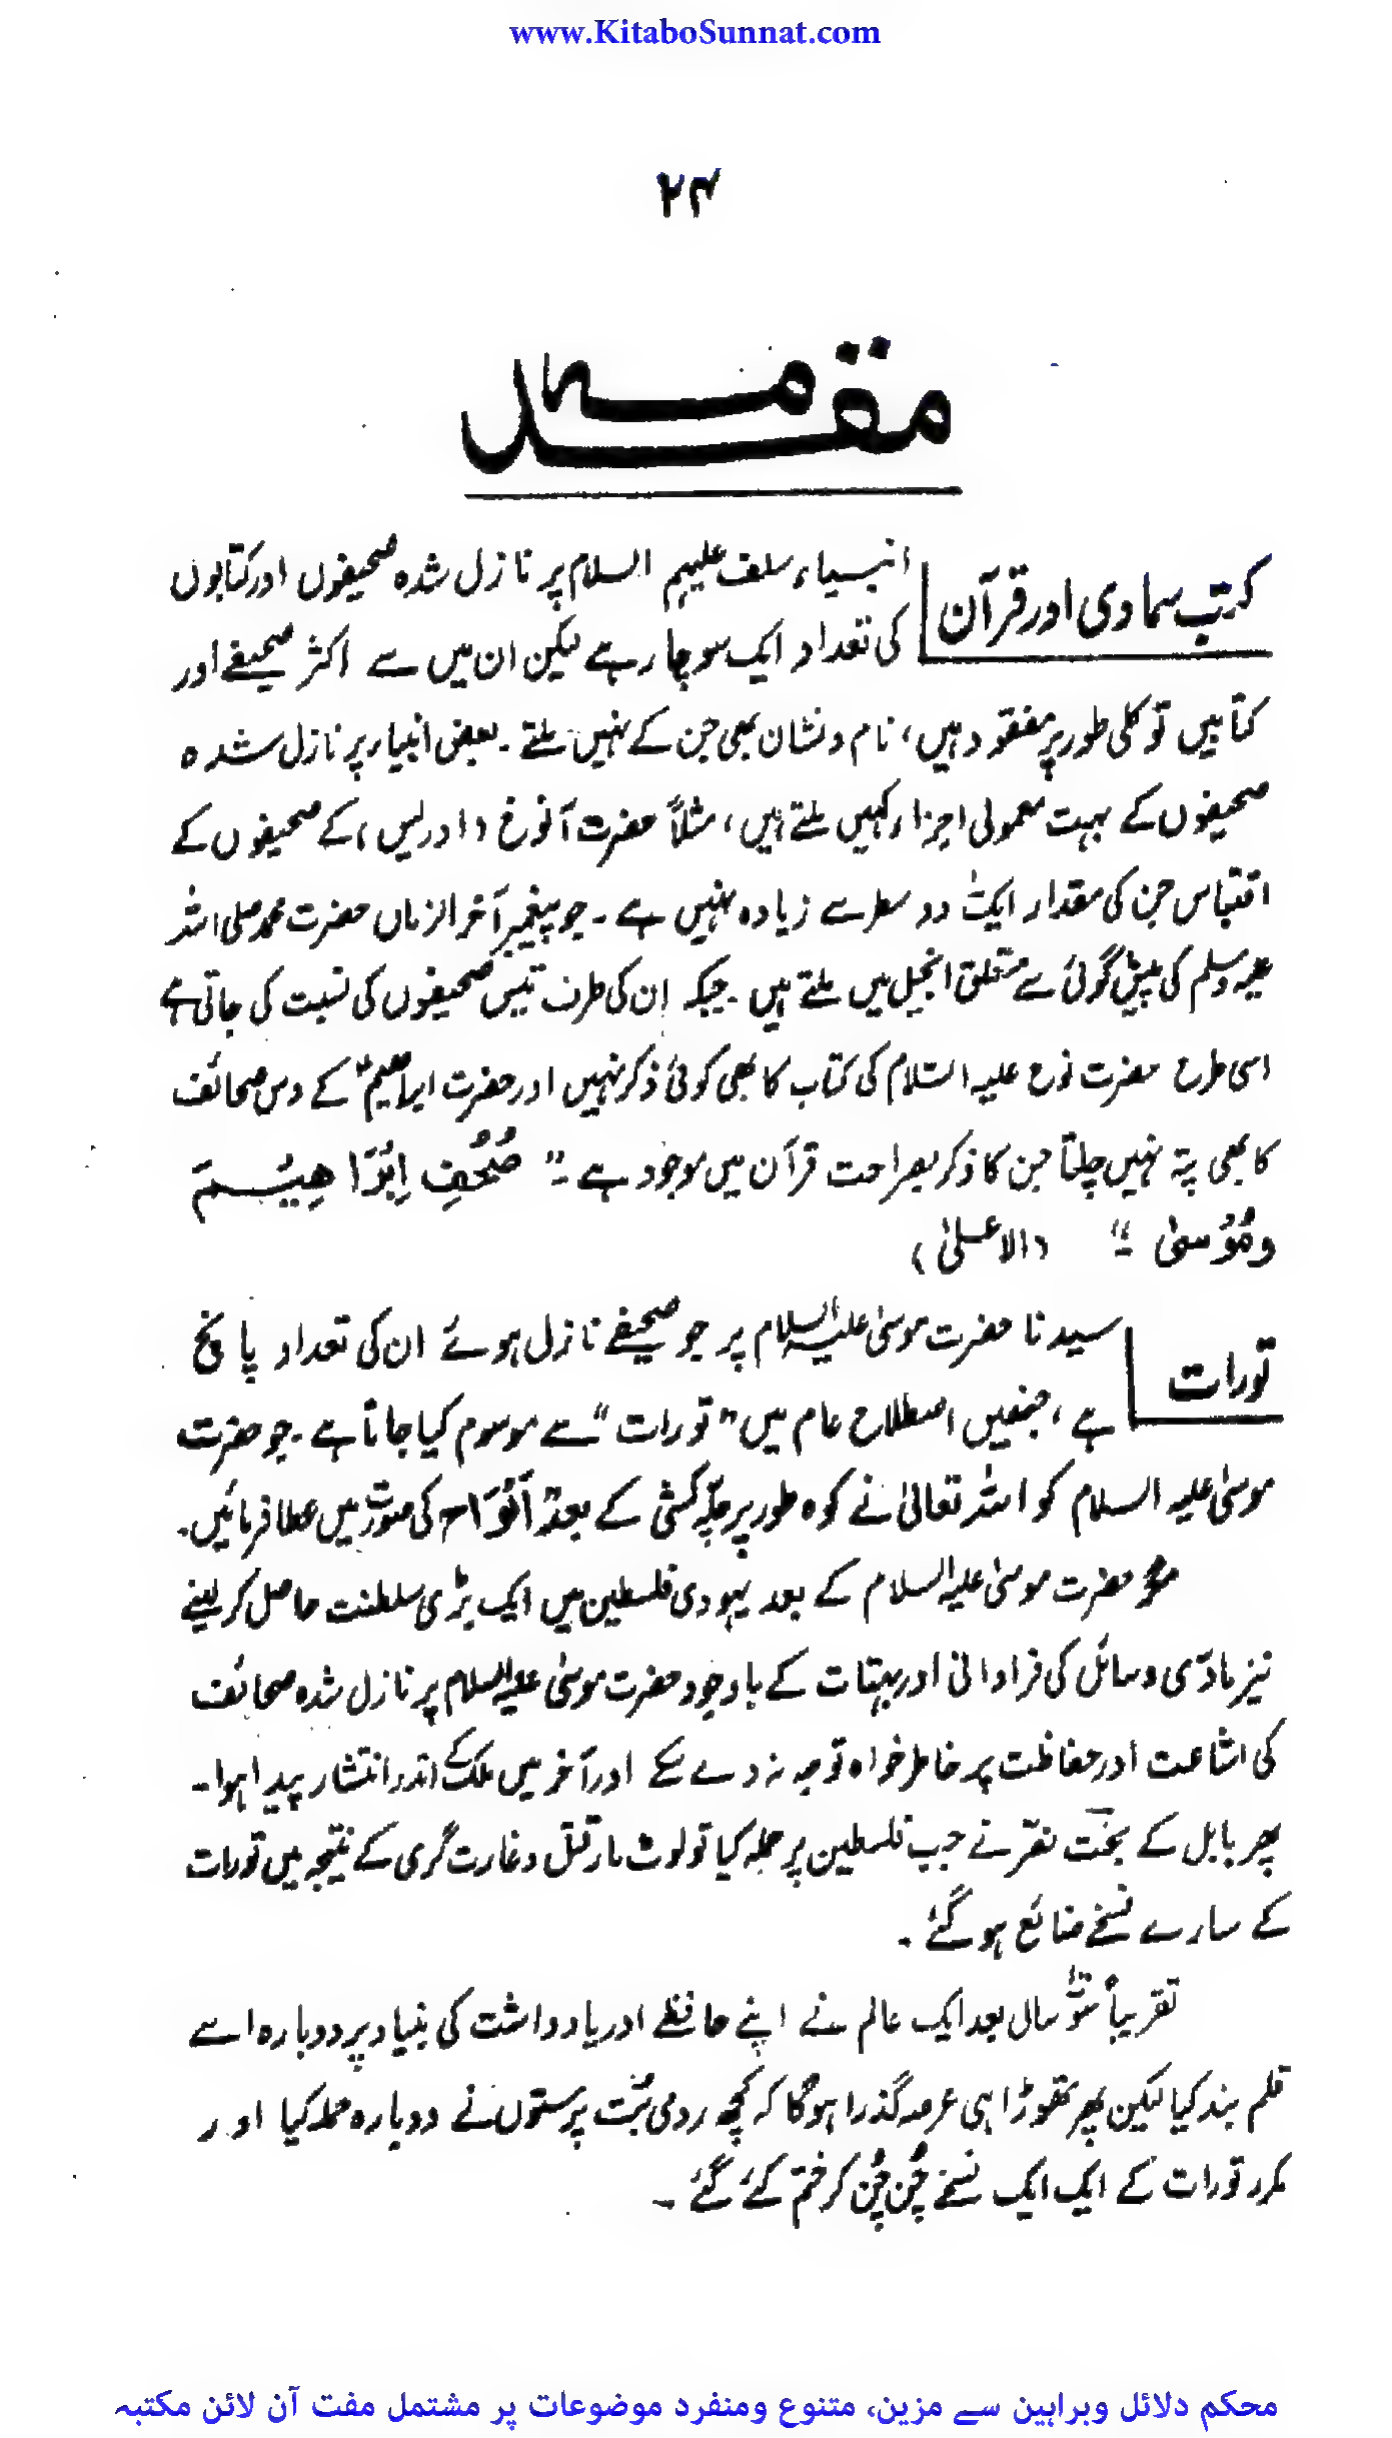 www.KitaboSunnat.com
۲۴
مقدمہ
کتب سماوی اور قرآن
انبیاء سلف علیہم السلام پر نازل شدہ صحیفوں اور کتابوں
کی تعداد ایک سو چار ہے لیکن ان میں سے اکثر صحیفے اور
کتابیں تو کلی طور پر مفقود ہیں، نام و نشان بھی جن کے نہیں ملتے۔ بعض انبیاء پر نازل شدہ
صحیفوں کے بہت معمولی اجزاء کہیں ملتے ہیں، مثلاً حضرت آنوخ (ادریس) کے صحیفوں کے
اقتباس جن کی مقدار ایک دو سطر سے زیادہ نہیں ہے۔ جو پیغمبر آخر الزماں حضرت محمد صلی اللہ
علیہ وسلم کی پیش گوئی سے متعلق انجیل میں ملتے ہیں۔ جبکہ ان کی طرف تیس صحیفوں کی نسبت کی جاتی ہے
اسی طرح حضرت نوح علیہ السلام کی کتاب کا بھی کوئی ذکر نہیں اور حضرت ابراھیمؑ کے دس صحائف
کا بھی پتہ نہیں چلتا جن کا ذکر بصراحت قرآن میں موجود ہے۔ "صُحُفِ اِبْرَاهِيْمَ
وَمُوْسٰى" (الاعلیٰ)
تورات
سیدنا حضرت موسیٰ علیہ السلام پر جو صحیفے نازل ہوئے ان کی تعداد پانچ
ہے، جنھیں اصطلاح عام میں "تورات" سے موسوم کیا جاتا ہے۔ جو حضرت
موسیٰ علیہ السلام کو اللہ تعالیٰ نے کوہ طور پر چلّہ کشی کے بعد "اَلْوَاح" کی صورت میں عطا فرمائیں۔
مگر حضرت موسیٰ علیہ السلام کے بعد یہودی فلسطین میں ایک بڑی سلطنت حاصل کر لینے
نیز مادّی وسائل کی فراوانی اور بہتات کے باوجود حضرت موسیٰ علیہ السلام پر نازل شدہ صحائف
کی اشاعت اور حفاظت پر خاطر خواہ توجہ نہ دے سکے اور آخر میں ملک کے اندر انتشار پیدا ہوا۔
پھر بابل کے بخت نصر نے جب فلسطین پر حملہ کیا تو لوٹ مار قتل و غارت گری کے نتیجہ میں تورات
کے سارے نسخے ضائع ہو گئے۔
تقریباً سوؔ سال بعد ایک عالم نے اپنے حافظے اور یادداشت کی بنیاد پر دوبارہ اسے
قلم بند کیا لیکن پھر تھوڑا ہی عرصہ گذرا ہوگا کہ کچھ رومی بُت پرستوں نے دوبارہ حملہ کیا اور
مکرر تورات کے ایک ایک نسخے چُن چُن کر ختم کئے گئے۔
محکم دلائل وبراہین سے مزین، متنوع ومنفرد موضوعات پر مشتمل مفت آن لائن مکتبہ